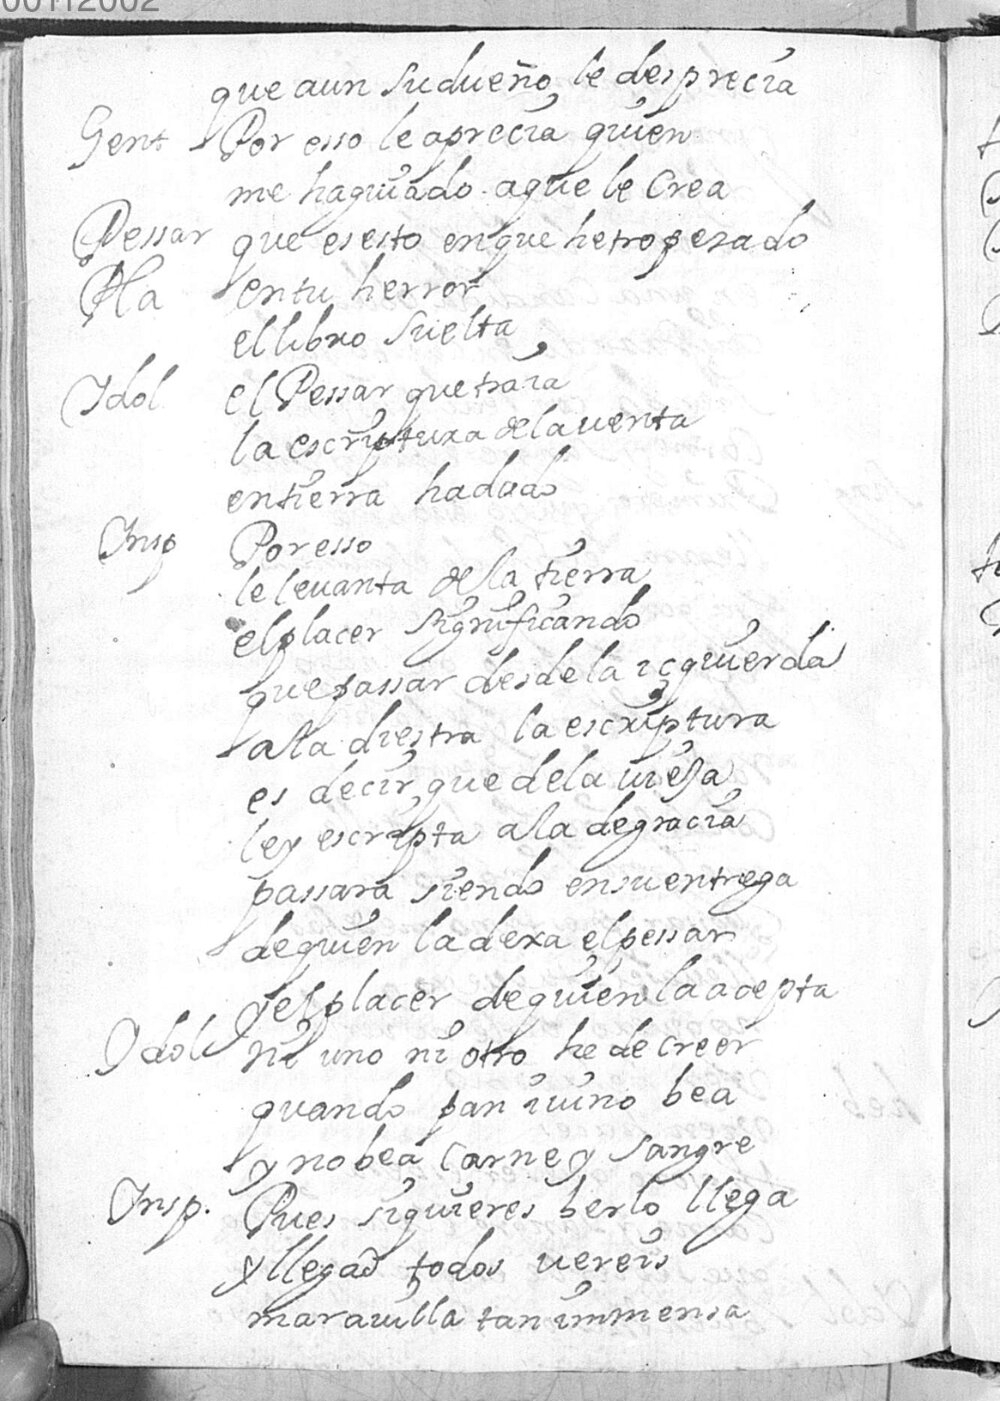 00112002
que aun su dueño le desprecia
Gent Por esso le aprecia quien
me ha guiado. a que le Crea
Pessar que es esto en que he tropezado
Pla en tu herror
el libro suelta
Idol el Pessar que traia
la escriptura de la uenta
en tierra ha dado
Insp Por esso
le leuanta de la tierra
el placer significando
que passar desde la izquierda
a la diestra la escriptura
es decir que de la uieja
ley escripta a la de gracia
passara siendo en su entrega
de quien la dexa el pessar
y el placer de quien la acepta
Idol ni uno ni otro he de creer
quando pan i uino bea
y no bea Carne y Sangre
Insp. Pues si quieres berlo llega
y llegad todos uereis
marauilla tan immensa